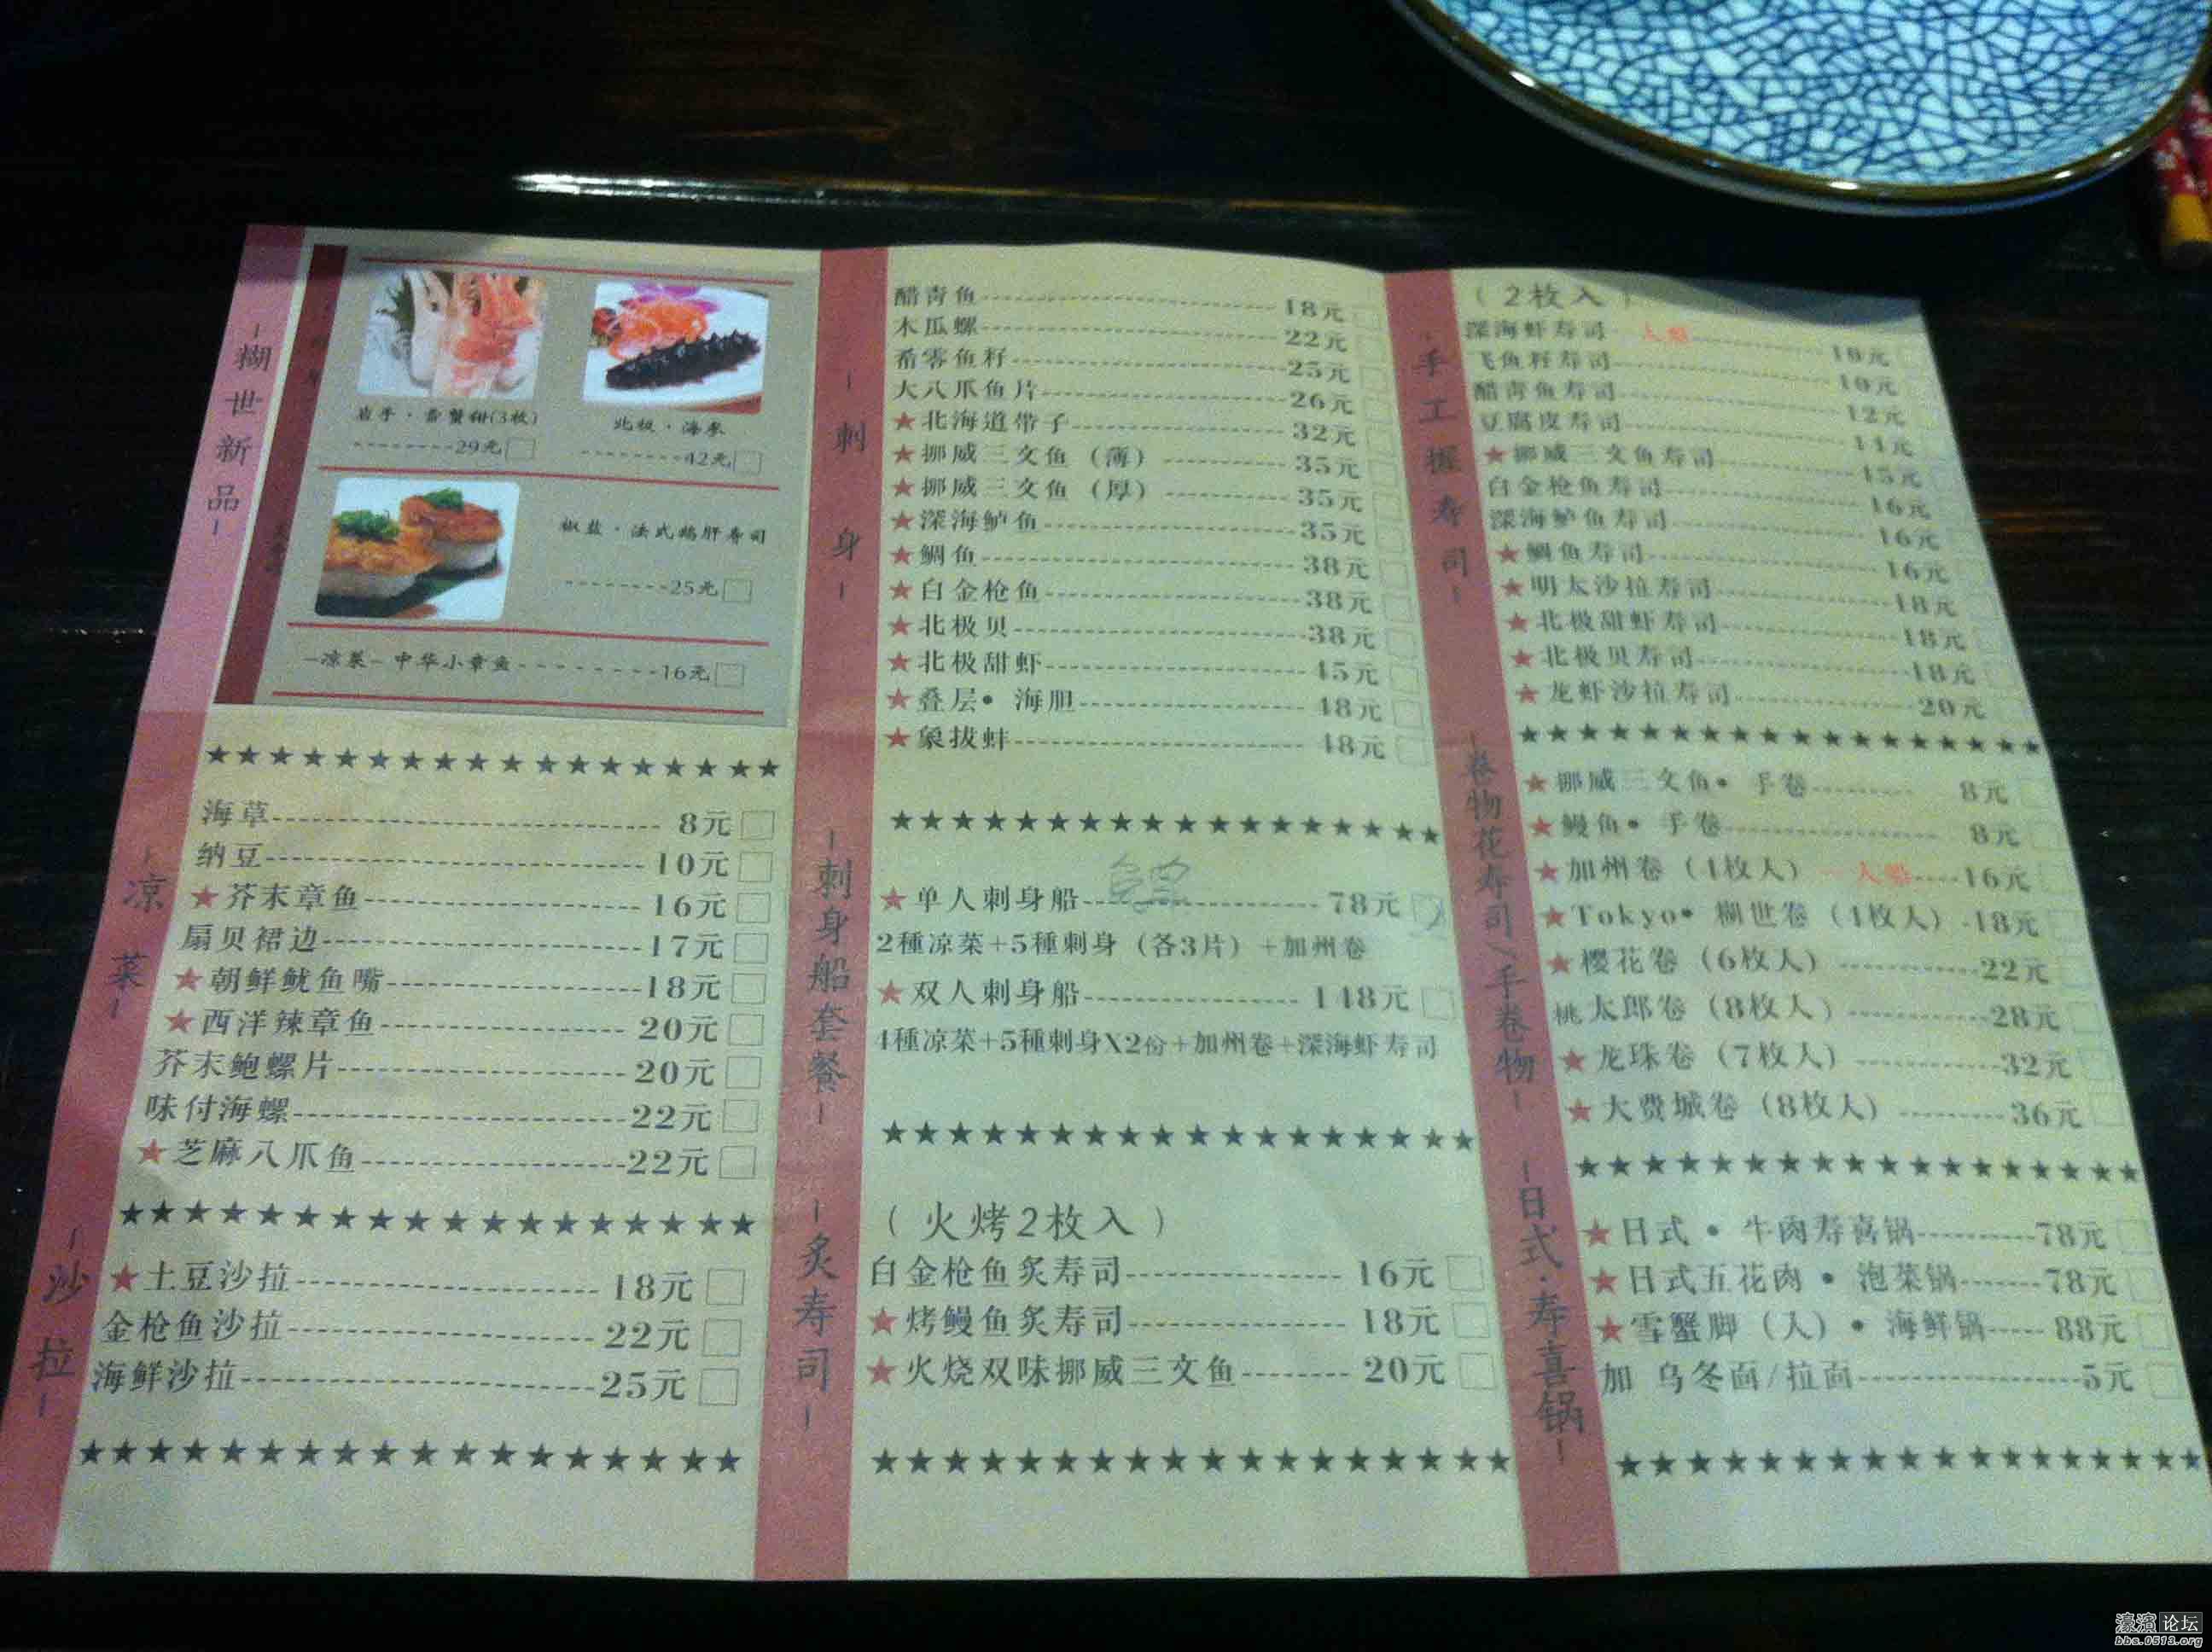 糊世新品
29元
北极·海参
42元
椒盐·法式鹅肝寿司
25元
凉菜-中华小章鱼 16元
凉菜
海草 8元
纳豆 10元
★芥末章鱼 16元
扇贝裙边 17元
★朝鲜鱿鱼嘴 18元
★西洋辣章鱼 20元
芥末鲍螺片 20元
味付海螺 22元
★芝麻八爪鱼 22元
沙拉
★土豆沙拉 18元
金枪鱼沙拉 22元
海鲜沙拉 25元
刺身
醋青鱼 18元
木瓜螺 22元
希零鱼籽 25元
大八爪鱼片 26元
★北海道带子 32元
★挪威三文鱼（薄） 35元
★挪威三文鱼（厚） 35元
★深海鲈鱼 35元
★鲷鱼 38元
★白金枪鱼 38元
★北极贝 38元
★北极甜虾 45元
★叠层• 海胆 48元
★象拔蚌 48元
刺身船套餐
★单人刺身船 78元
2種凉菜+5種刺身（各3片）+加州卷
★双人刺身船 148元
4種凉菜+5種刺身X2份+加州卷+深海虾寿司
炙寿司
（火烤2枚入）
白金枪鱼炙寿司 16元
★烤鳗鱼炙寿司 18元
★火烧双味挪威三文鱼 20元
手工握寿司
（2枚入）
深海虾寿司 10元
飞鱼籽寿司 10元
醋青鱼寿司 12元
豆腐皮寿司 14元
★挪威三文鱼寿司 15元
白金枪鱼寿司 16元
深海鲈鱼寿司 16元
★鲷鱼寿司 16元
★明太沙拉寿司 18元
★北极甜虾寿司 18元
★北极贝寿司 18元
★龙虾沙拉寿司 20元
卷物花寿司/手卷物
★挪威三文鱼• 手卷 8元
★鳗鱼• 手卷 8元
★加州卷（4枚入） 16元
★Tokyo• 糊世卷（4枚入） 18元
★樱花卷（6枚入） 22元
桃太郎卷（8枚入） 28元
★龙珠卷（7枚入） 32元
★大费城卷（8枚入） 36元
日式·寿喜锅
★日式 • 牛肉寿喜锅 78元
★日式五花肉 • 泡菜锅 78元
★雪蟹脚（入）• 海鲜锅 88元
加 乌冬面/拉面 5元
濠滨论坛
bbs.0513.org